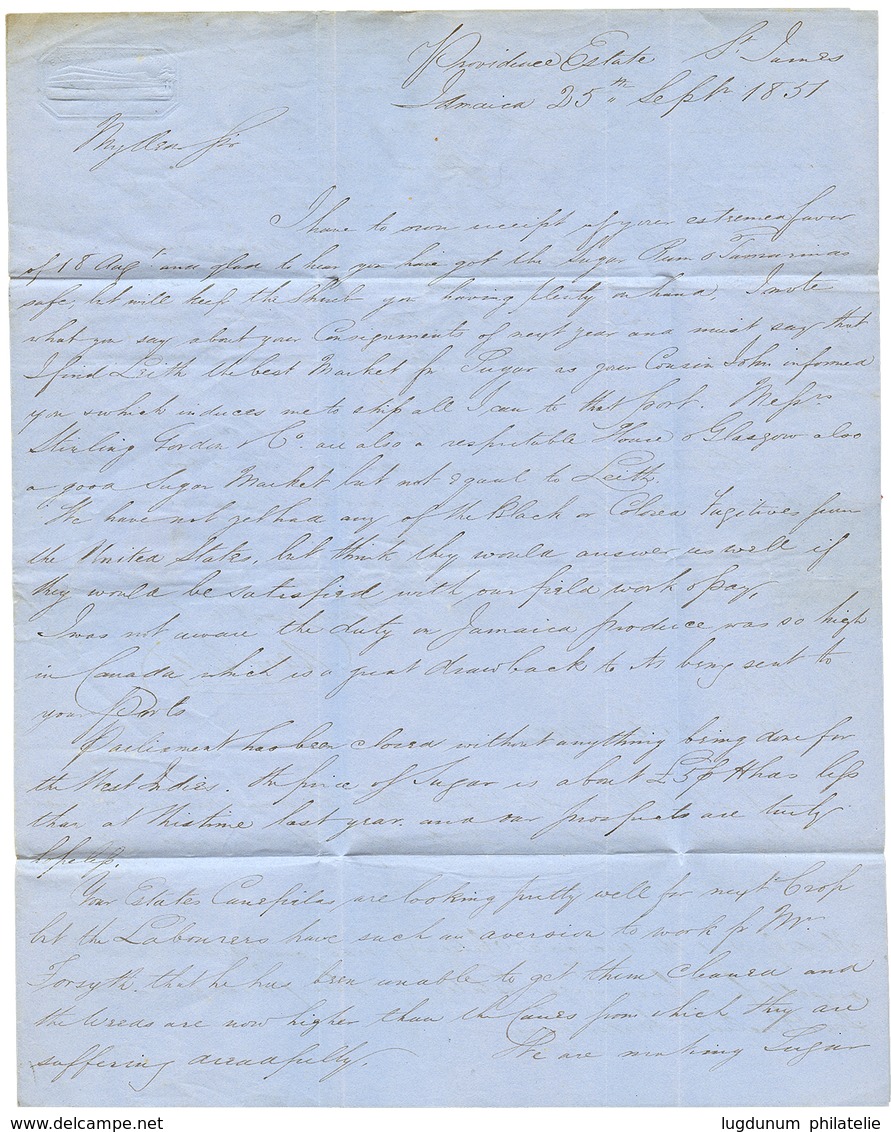 Providence Estate St James
Jamaica 25th Septr 1851
My Dear Sir
I have to own receipt of your esteemed favor
of 18 Augt and glad to hear you have got the Sugar Rum & Tamarinds
safe, but will keep the Shrub you having plenty on hand, I note
what you say about your Consignments of next year and must say that
I find Leith the best Market for Sugar as your Cousin John informed
you & which induces me to ship all I can to that port. Messrs
Stirling Gordon & Co. are also a respectable House & Glasgow also
a good Sugar Market but not equal to Leith
We have not yet had any of the Black or Colored Fugitives from
the United States, but think they would answer us well if
they would be satisfied with our field work & pay,
I was not aware the duty on Jamaica produce was so high
in Canada which is a great drawback to its being sent to
your Ports
Parliament has been closed without anything being done for
the West Indies. the price of Sugar is about £5 p Hhas less
than at this time last year. and our prospects are truly
hopeless.
Your Estates Canefields are looking pretty well for next Crop
but the Labourers have such an aversion to work for Mr.
Forsyth that he has been unable to get them cleaned and
the weeds are now higher than the Canes from which they are
suffering dreadfully. We are making Sugar
delcampe.net
lugdunum philatelie